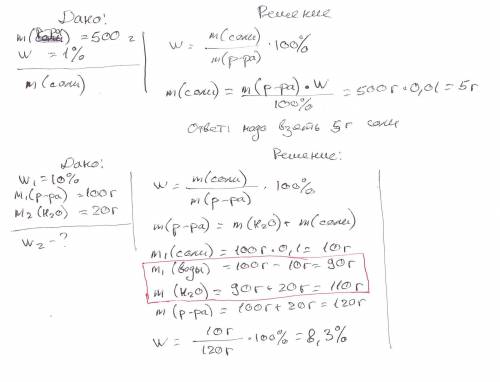 Дано:
m(р-ра) = 500 г
W = 1%
m(соли)
Решение
W = m(соли) / m(р-ра) · 100%
m(соли) = m(р-ра) · W / 100% = 500г · 0,01 = 5г
Ответ: надо взять 5 г соли
Дано:
W₁ = 10%
m₁(р-ра) = 100г
m₂(H₂O) = 20г
W₂ - ?
Решение:
W = m(соли) / m(р-ра) · 100%
m(р-ра) = m(H₂O) + m(соли)
m₁(соли) = 100г · 0,1 = 10г
m₁(воды) = 100г - 10г = 90г
m(H₂O) = 90г + 20г = 110г
m(р-ра) = 100г + 20г = 120г
W = 10г / 120г · 100% = 8,3%